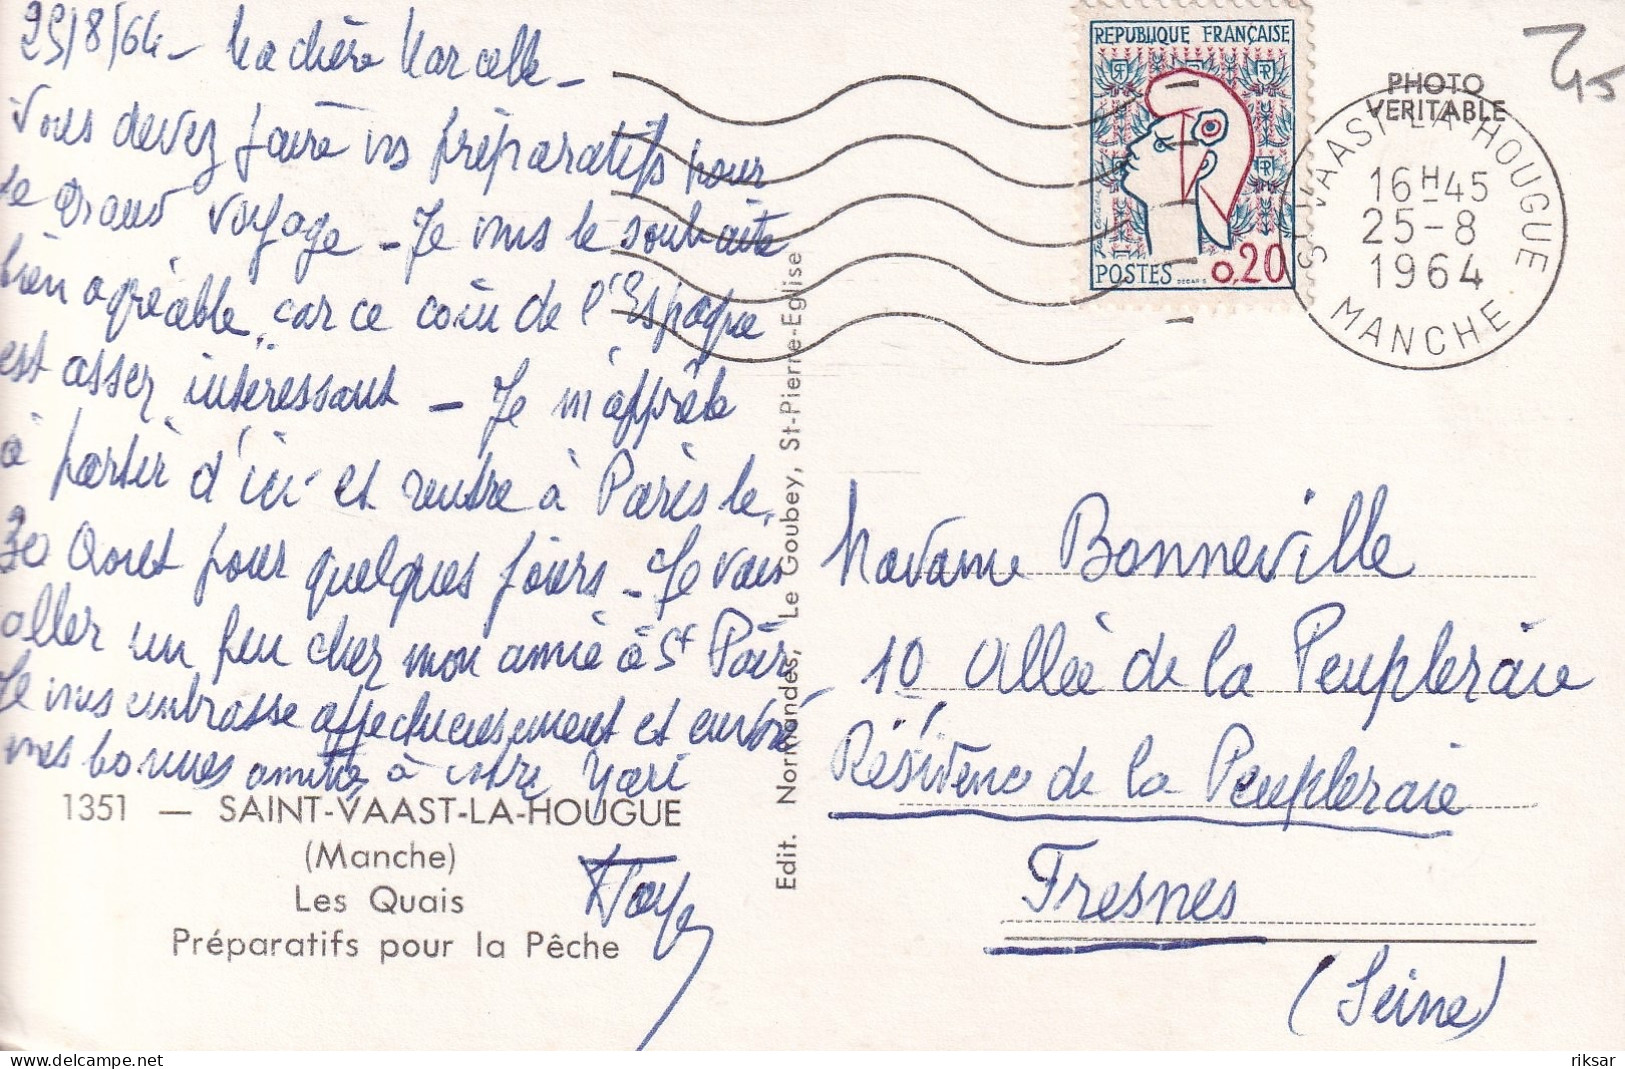 25/8/64 - Ma chère Marcelle -
Vous devez faire vos préparatifs pour
le grand voyage - Je vous le souhaite
bien agréable, car ce coin de l'Espagne
est assez intéressant - Je m'apprête
à partir d'ici et rentre à Paris le
30 Août pour quelques jours - Je vais
aller un peu chez mon amie à St Pair
Je vous embrasse affectueusement et
mes bonnes amitiés à votre Mari
1351 — SAINT-VAAST-LA-HOUGUE
(Manche)
Les Quais
Préparatifs pour la Pêche
Edit. Normandes, Le Goubey, St-Pierre-Eglise
REPUBLIQUE FRANÇAISE
POSTES 0,20
PHOTO
VERITABLE
ST VAAST-LA-HOUGUE
16H45
25-8
1964
MANCHE
Madame Bonneville
10 allée de la Peupleraie
Résidence de la Peupleraie
Fresnes
(Seine)
riksar